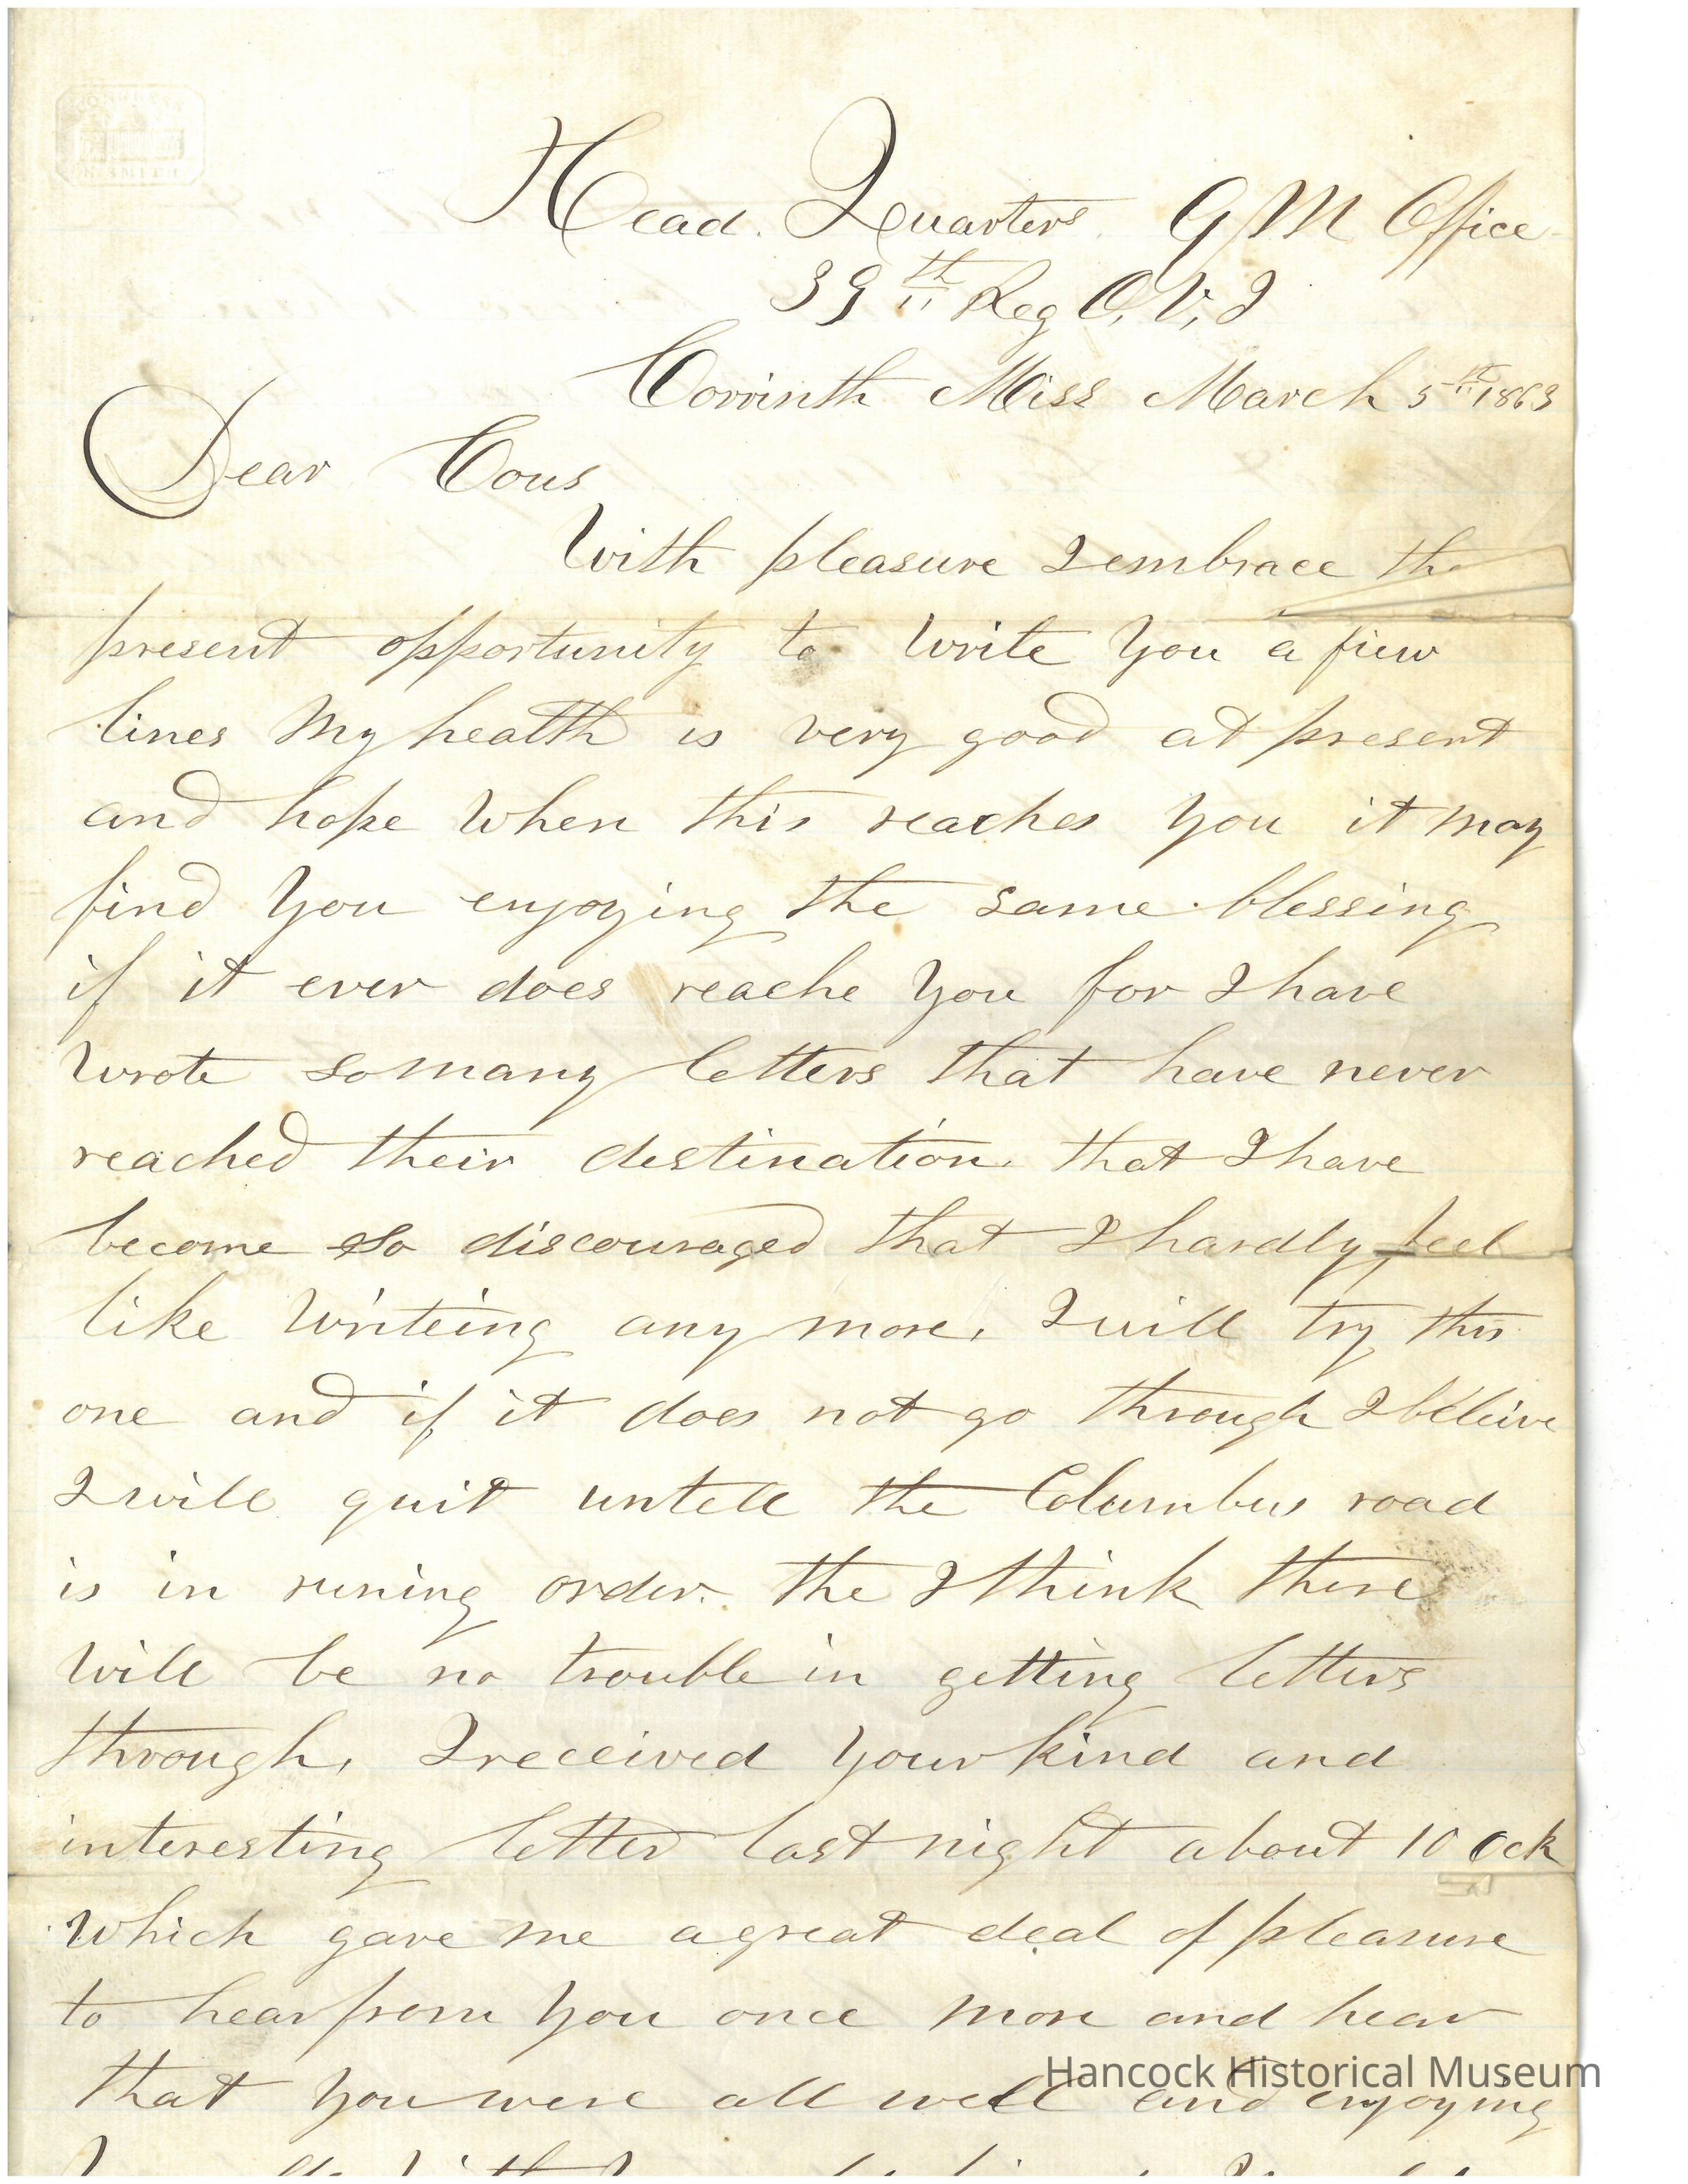 Head. Quarters. Q M Office
39th Reg O, V, I
Corrinth Miss March 5th 1863
Dear Cous
With pleasure I embrace the
present opportunity to write you a fiew
lines My health is very good at present
and hope when this reaches you it may
find you enjoying the same blessing
if it ever does reache you for I have
wrote so many letters that have never
reached their destination. that I have
become so discouraged that I hardly feel
like writeing any more. I will try this
one and if it does not go through I beleive
I will quit untell the Columbus road
is in runing order. the I think there
will be no trouble in getting letters
through. I received your kind and
interesting letter last night about 10 Ock
which gave me a great deal of pleasure
to hear from you once more and hear
Hancock Historical Museum
that you were all well and enjoying